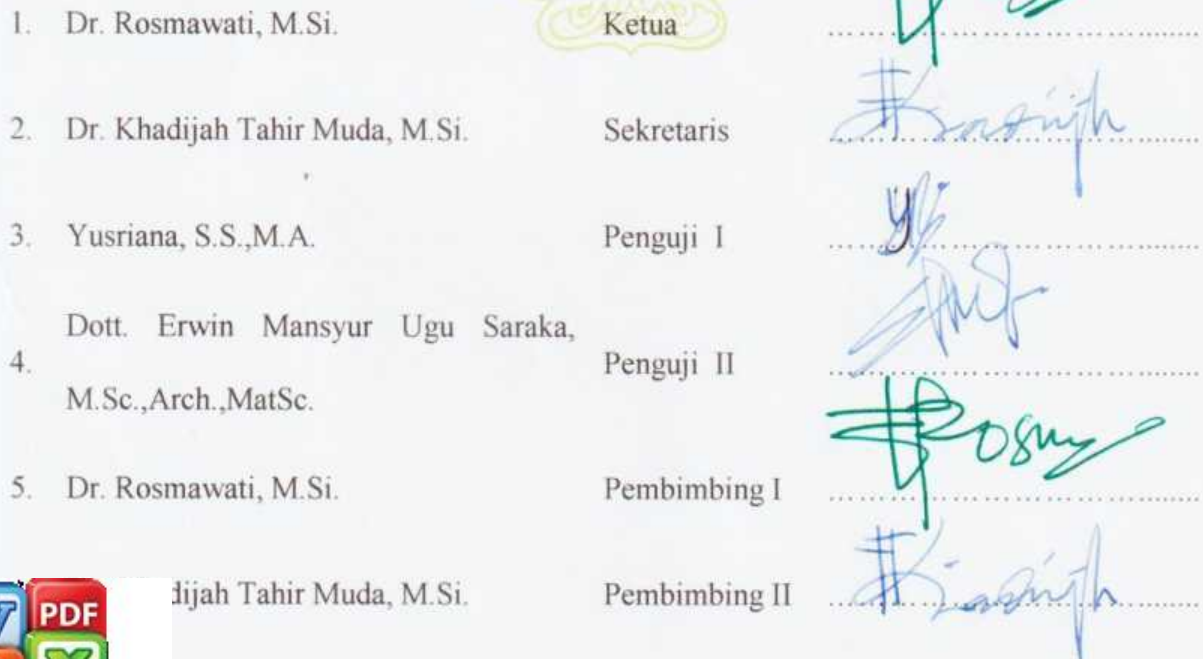 1. Dr. Rosmawati, M.Si. Ketua
2. Dr. Khadijah Tahir Muda, M.Si. Sekretaris
3. Yusriana, S.S.,M.A. Penguji I
Dott. Erwin Mansyur Ugu Saraka,
4. Penguji II
M.Sc.,Arch.,MatSc.
5. Dr. Rosmawati, M.Si. Pembimbing I
dijah Tahir Muda, M.Si. Pembimbing II
PDF